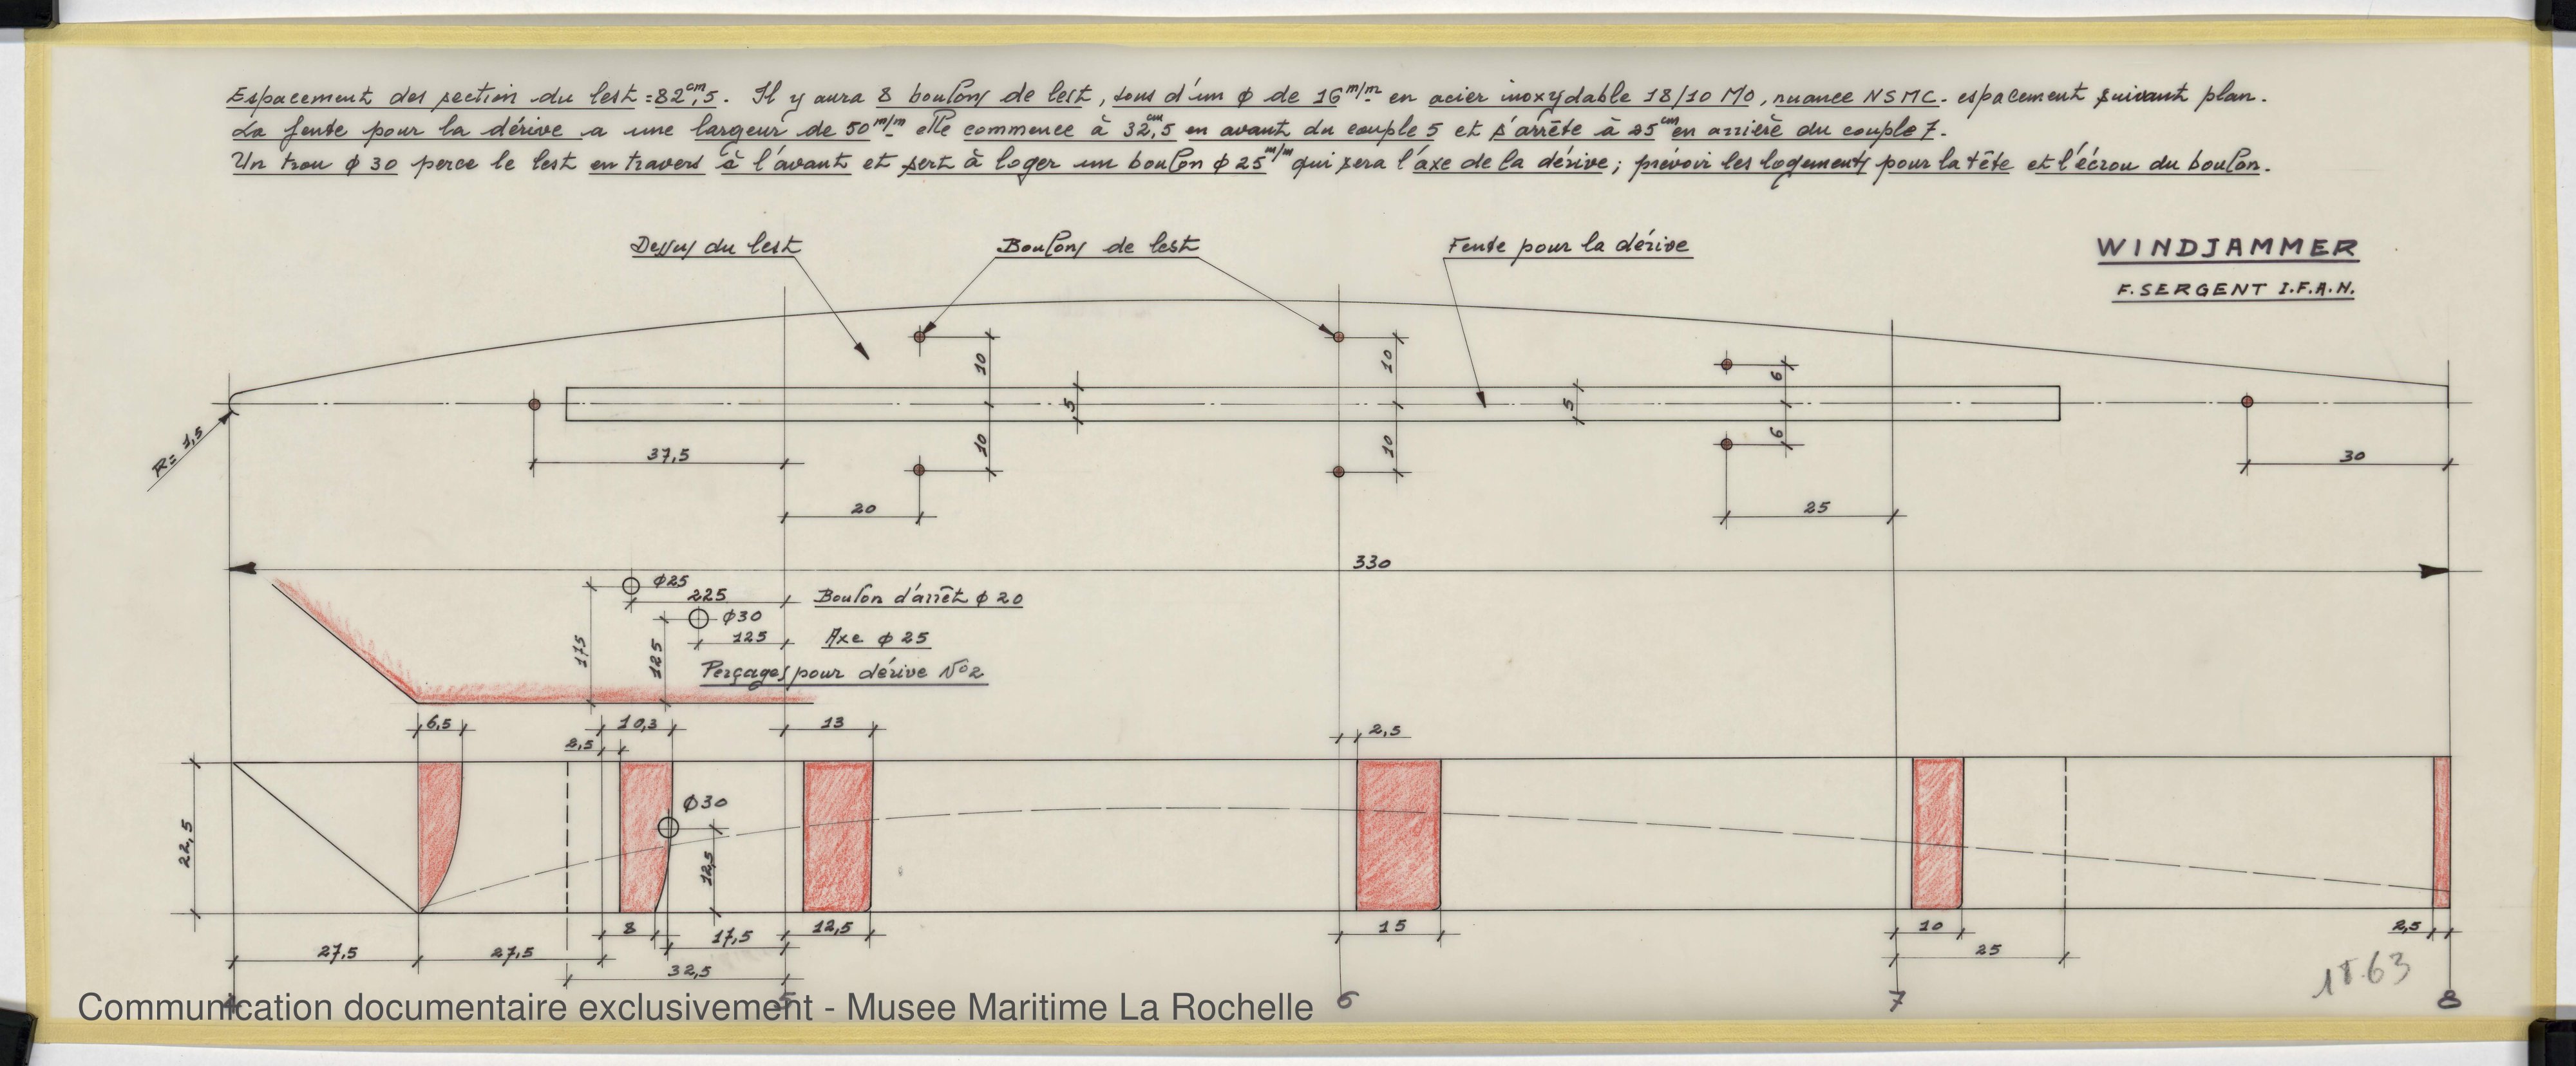 Espacement des section du lest = 82cm,5. Il y aura 8 boulons de lest, tous d'un ϕ de 16 m/m en acier inoxydable 18/10 MO, nuance NSMC. espacement suivant plan.
La fente pour la dérive a une largeur de 50 m/m elle commence à 32cm,5 en avant du couple 5 et s'arrête à 25cm en arrière du couple 7.
Un trou ϕ 30 perce le lest en travers à l'avant et sert à loger un boulon ϕ 25 m/m qui sera l'axe de la dérive; prévoir les logements pour la tête et l'écrou du boulon.
Dessus du lest
Boulons de lest
Fente pour la dérive
WINDJAMMER
F. SERGENT I.F.A.N.
10
10
6
5
5
R= 1,5
10
10
6
37,5
30
20
25
330
ϕ25
225
Boulon d'arrêt ϕ 20
ϕ30
125
Axe ϕ 25
175
125
Perçages pour dérive N°2
6,5
10,3
13
2,5
2,5
ϕ30
22,5
12,5
8
17,5
12,5
15
10
2,5
27,5
27,5
32,5
25
15.63
4
5
6
7
8
Communication documentaire exclusivement - Musee Maritime La Rochelle